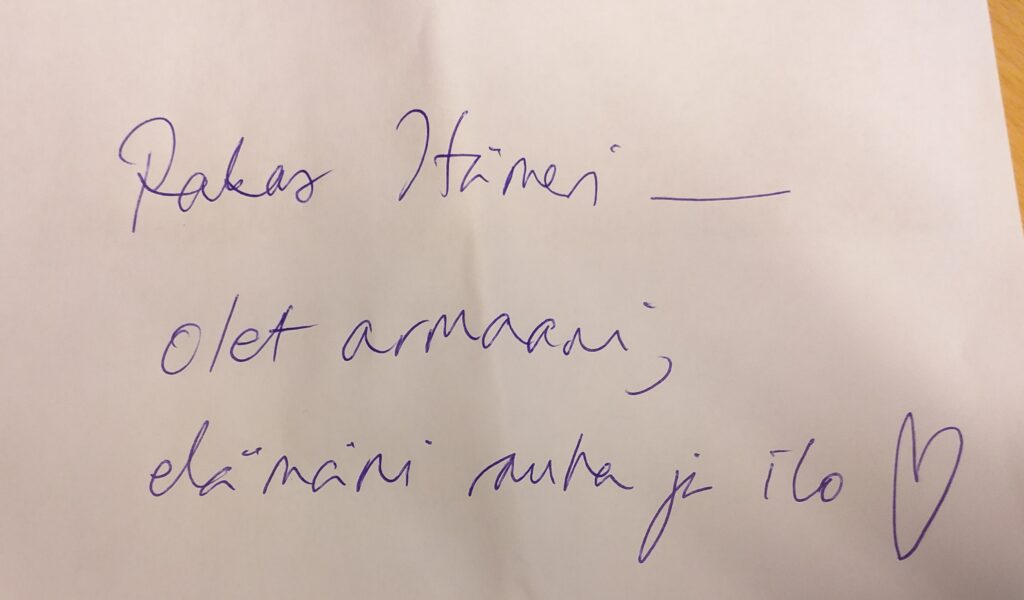 Rakas Itämeri —
olet armaani,
elämäni rauha ja ilo ♡